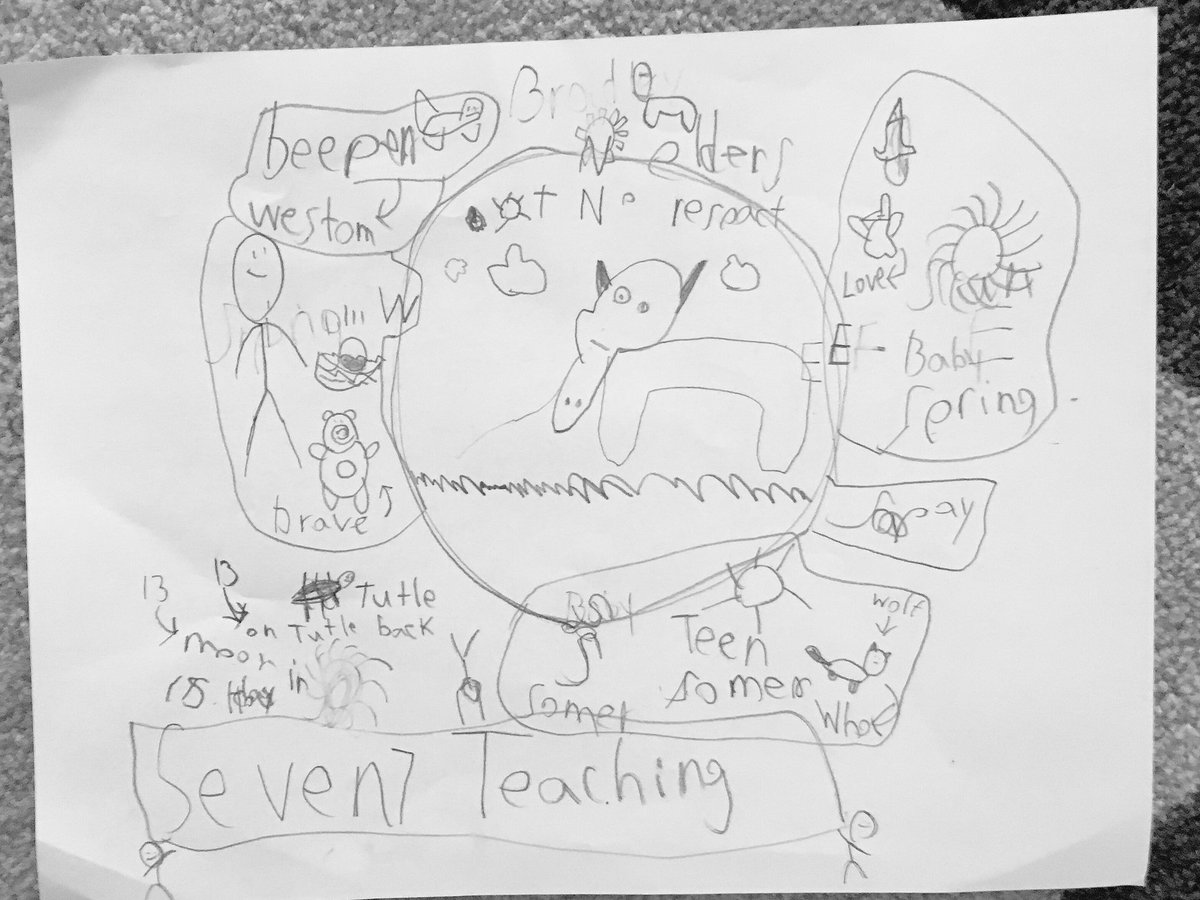 beepen
westom
elders
N
N
respact
W
Love
E
Baby
Spring
brave
13
13
Tutle
on Tutle back
moon in
Baby
Somer
Teen
Somer
wolf
Whoe
Seven7 Teaching